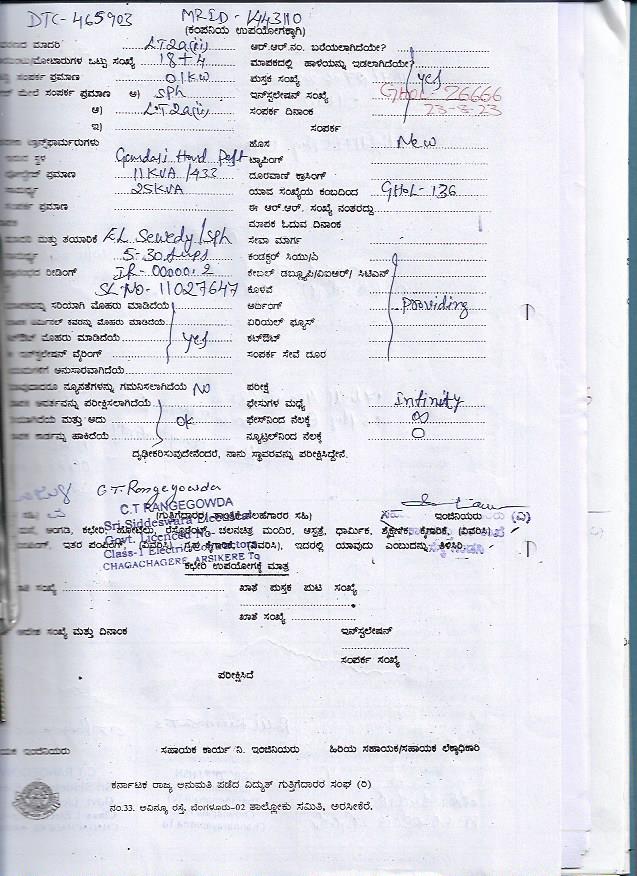 DTC-465903 MRED-1443110
(ಕಂಪನಿಯ ಉಪಯೋಗಕ್ಕಾಗಿ)
ಮಾದರಿ LT2a(ii) ಆರ್.ಆರ್.ನಂ. ಬರೆಯಲಾಗಿದೆಯೇ?
ಒಟ್ಟು ಸಂಖ್ಯೆ 18+4 ಮಾಪಕದಲ್ಲಿ ಹಾಳೆಯನ್ನು ಇಡಲಾಗಿದೆಯೇ?
ಸಂಪರ್ಕ ಪ್ರಮಾಣ 01KW ಪುಸ್ತಕ ಸಂಖ್ಯೆ yes
ಮೇಲೆ ಸಂಪರ್ಕ ಪ್ರಮಾಣ ಅ) sph ಇನ್ಸ್‌ಟಲೇಷನ್ ಸಂಖ್ಯೆ GHOL-26666
ಆ) LT2a(ii) ಸಂಪರ್ಕ ದಿನಾಂಕ 23-3-23
ಇ) ಸಂಪರ್ಕ
ಟ್ರಾನ್ಸ್‌ಫಾರ್ಮರುಗಳು ಹೊಸ New
ಸ್ಥಳ ಟ್ಯಾಪಿಂಗ್
ಪ್ರಮಾಣ 11KVA/433 ದೂರವಾಣಿ ಕ್ರಾಸಿಂಗ್
25KVA ಯಾವ ಸಂಖ್ಯೆಯ ಕಂಬದಿಂದ GHOL-136
ಸಂಪರ್ಕ ಪ್ರಮಾಣ ಈ ಆರ್.ಆರ್. ಸಂಖ್ಯೆ ನಂತರದ್ದು
ಮಾಪಕ ಓದುವ ದಿನಾಂಕ
ಮತ್ತು ತಯಾರಿಕೆ EL Sewedy/Sph ಸೇವಾ ಮಾರ್ಗ
5-30 Amps ಕಂಡಕ್ಟರ್ ಸಿಯು/ಎ
ರೀಡಿಂಗ್ IR-00000.2 ಕೇಬಲ್ ಡಬ್ಲ್ಯೂಪಿ/ವಿಐಆರ್/ ಸಿಟಿಎಸ್
SL.NO-11027647 ಕೊಳವೆ
ಸರಿಯಾಗಿ ಮೊಹರು ಮಾಡಿದೆಯೆ ಅರ್ದಿಂಗ್ Providing
ಕವರನ್ನು ಮೊಹರು ಮಾಡಿದೆಯೆ ಏರಿಯಲ್ ಫ್ಯೂಸ್
ಮೊಹರು ಮಾಡಿದೆಯೆ yes ಕಟ್‌ಔಟ್
ಇನ್‌ಸ್ಟಲೇಷನ್ ವೈರಿಂಗ್ ಸಂಪರ್ಕ ಸೇವೆ ದೂರ
ಅನುಸಾರವಾಗಿದೆಯೆ
ನ್ಯೂನತೆಗಳನ್ನು ಗಮನಿಸಲಾಗಿದೆಯೆ No ಪರೀಕ್ಷೆ
ಪರೀಕ್ಷಿಸಲಾಗಿದೆಯೆ ಫೇಸುಗಳ ಮಧ್ಯೆ infinity
ಮತ್ತು ಅದು ok ಫೇಸ್‌ನಿಂದ ನೆಲಕ್ಕೆ ∞
ಕಾರ್ಡನ್ನು ಹಾಕಿದೆಯೆ ನ್ಯೂಟ್ರಲ್‌ನಿಂದ ನೆಲಕ್ಕೆ 0
ದೃಢೀಕರಿಸುವುದೇನೆಂದರೆ, ನಾನು ಸ್ಥಾವರವನ್ನು ಪರೀಕ್ಷಿಸಿದ್ದೇನೆ.
C.T. Rangegowda
C.T RANGEGOWDA
(ಗುತ್ತಿಗೆದಾರರ ಸಹಿ) ಇಂಜಿನಿಯರು
Sri Siddeswara
ಅಂಗಡಿ, ಕಛೇರಿ, ಹೋಟೆಲು, ರೆಸ್ಟೊರೆಂಟ್, ಚಲನಚಿತ್ರ ಮಂದಿರ, ಆಸ್ಪತ್ರೆ, ಧಾರ್ಮಿಕ, ಶೈಕ್ಷಣಿಕ, ಕೈಗಾರಿಕೆ, (ವಿವರಿಸಿ)
Govt. Licenced No-
ಇತರ ಪಂಪಿಂಗ್, ಗೃಹ ಕೈಗಾರಿಕೆ, (ವಿವರಿಸಿ), ಇದರಲ್ಲಿ ಯಾವುದು ಎಂಬುದನ್ನು ತಿಳಿಸಿರಿ
Class-1 Electrical Contractor
CHAGACHAGERE, ARSIKERE Tq
ಕಛೇರಿ ಉಪಯೋಗಕ್ಕೆ ಮಾತ್ರ
ಸಂಖ್ಯೆ ಖಾತೆ ಪುಸ್ತಕ ಪುಟ ಸಂಖ್ಯೆ
ಖಾತೆ ಸಂಖ್ಯೆ
ಆದೇಶ ಸಂಖ್ಯೆ ಮತ್ತು ದಿನಾಂಕ ಇನ್‌ಸ್ಟಲೇಷನ್
ಸಂಪರ್ಕ ಸಂಖ್ಯೆ
ಪರೀಕ್ಷಿಸಿದೆ
ಇಂಜಿನಿಯರು ಸಹಾಯಕ ಕಾರ್ಯ ನಿ. ಇಂಜಿನಿಯರು ಹಿರಿಯ ಸಹಾಯಕ/ಸಹಾಯಕ ಲೆಕ್ಕಾಧಿಕಾರಿ
ಕರ್ನಾಟಕ ರಾಜ್ಯ ಅನುಮತಿ ಪಡೆದ ವಿದ್ಯುತ್ ಗುತ್ತಿಗೆದಾರರ ಸಂಘ (ರಿ)
ನಂ.33. ಅವಿನ್ಯೂ ರಸ್ತೆ, ಬೆಂಗಳೂರು-02 ತಾಲ್ಲೋಕು ಸಮಿತಿ, ಅರಸೀಕೆರೆ.